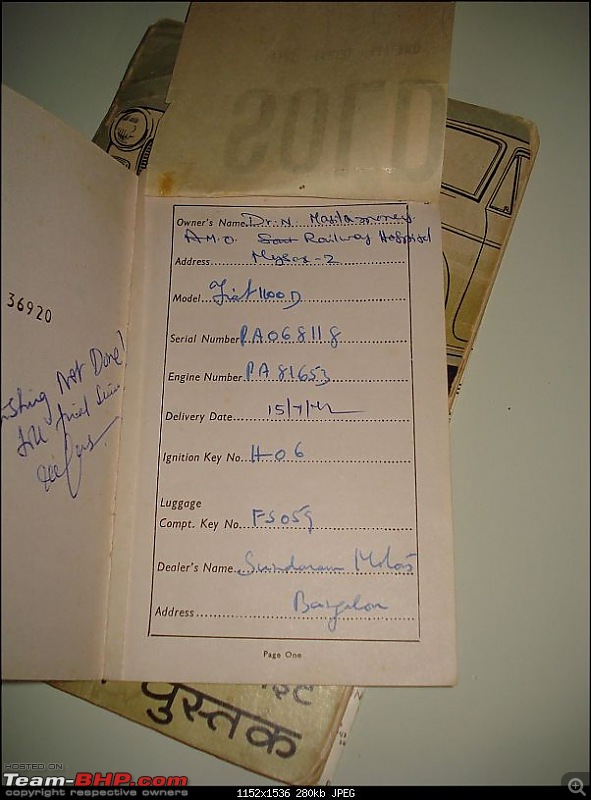 36920
Not Done!
till
Owner's Name Dr. N.
A.M.O. Railway Hospital
Address Mysore-2
Model Fiat 1100 D
Serial Number PA068118
Engine Number PA 81653
Delivery Date 15/7/
Ignition Key No. H 06
Luggage
Compt. Key No. FS059
Dealer's Name Sundaram Motors
Address Bangalore
Page One
पुस्तक
HOSTED ON
Team-BHP.com
copyright respective owners
1152x1536 280kb JPEG